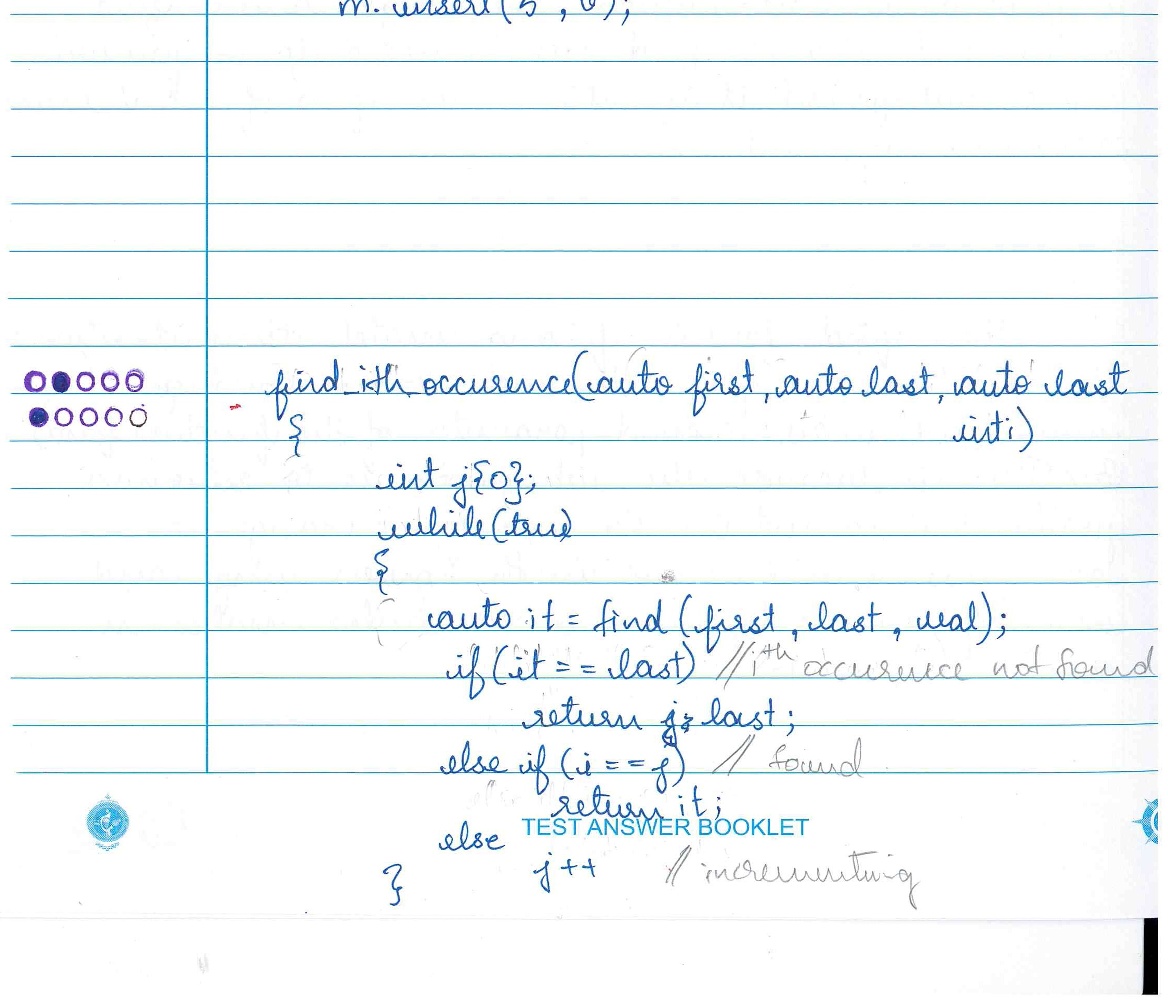 m. insert(5, 0);
find_ith_occurence(auto first, auto last, auto last
int i)
{
int j{0};
while(true)
{
auto it = find (first, last, val);
if(it == last) //ith occurence not found
return last;
else if (i == j) // found
return it;
TEST ANSWER BOOKLET
else
j++ // incrementing
}